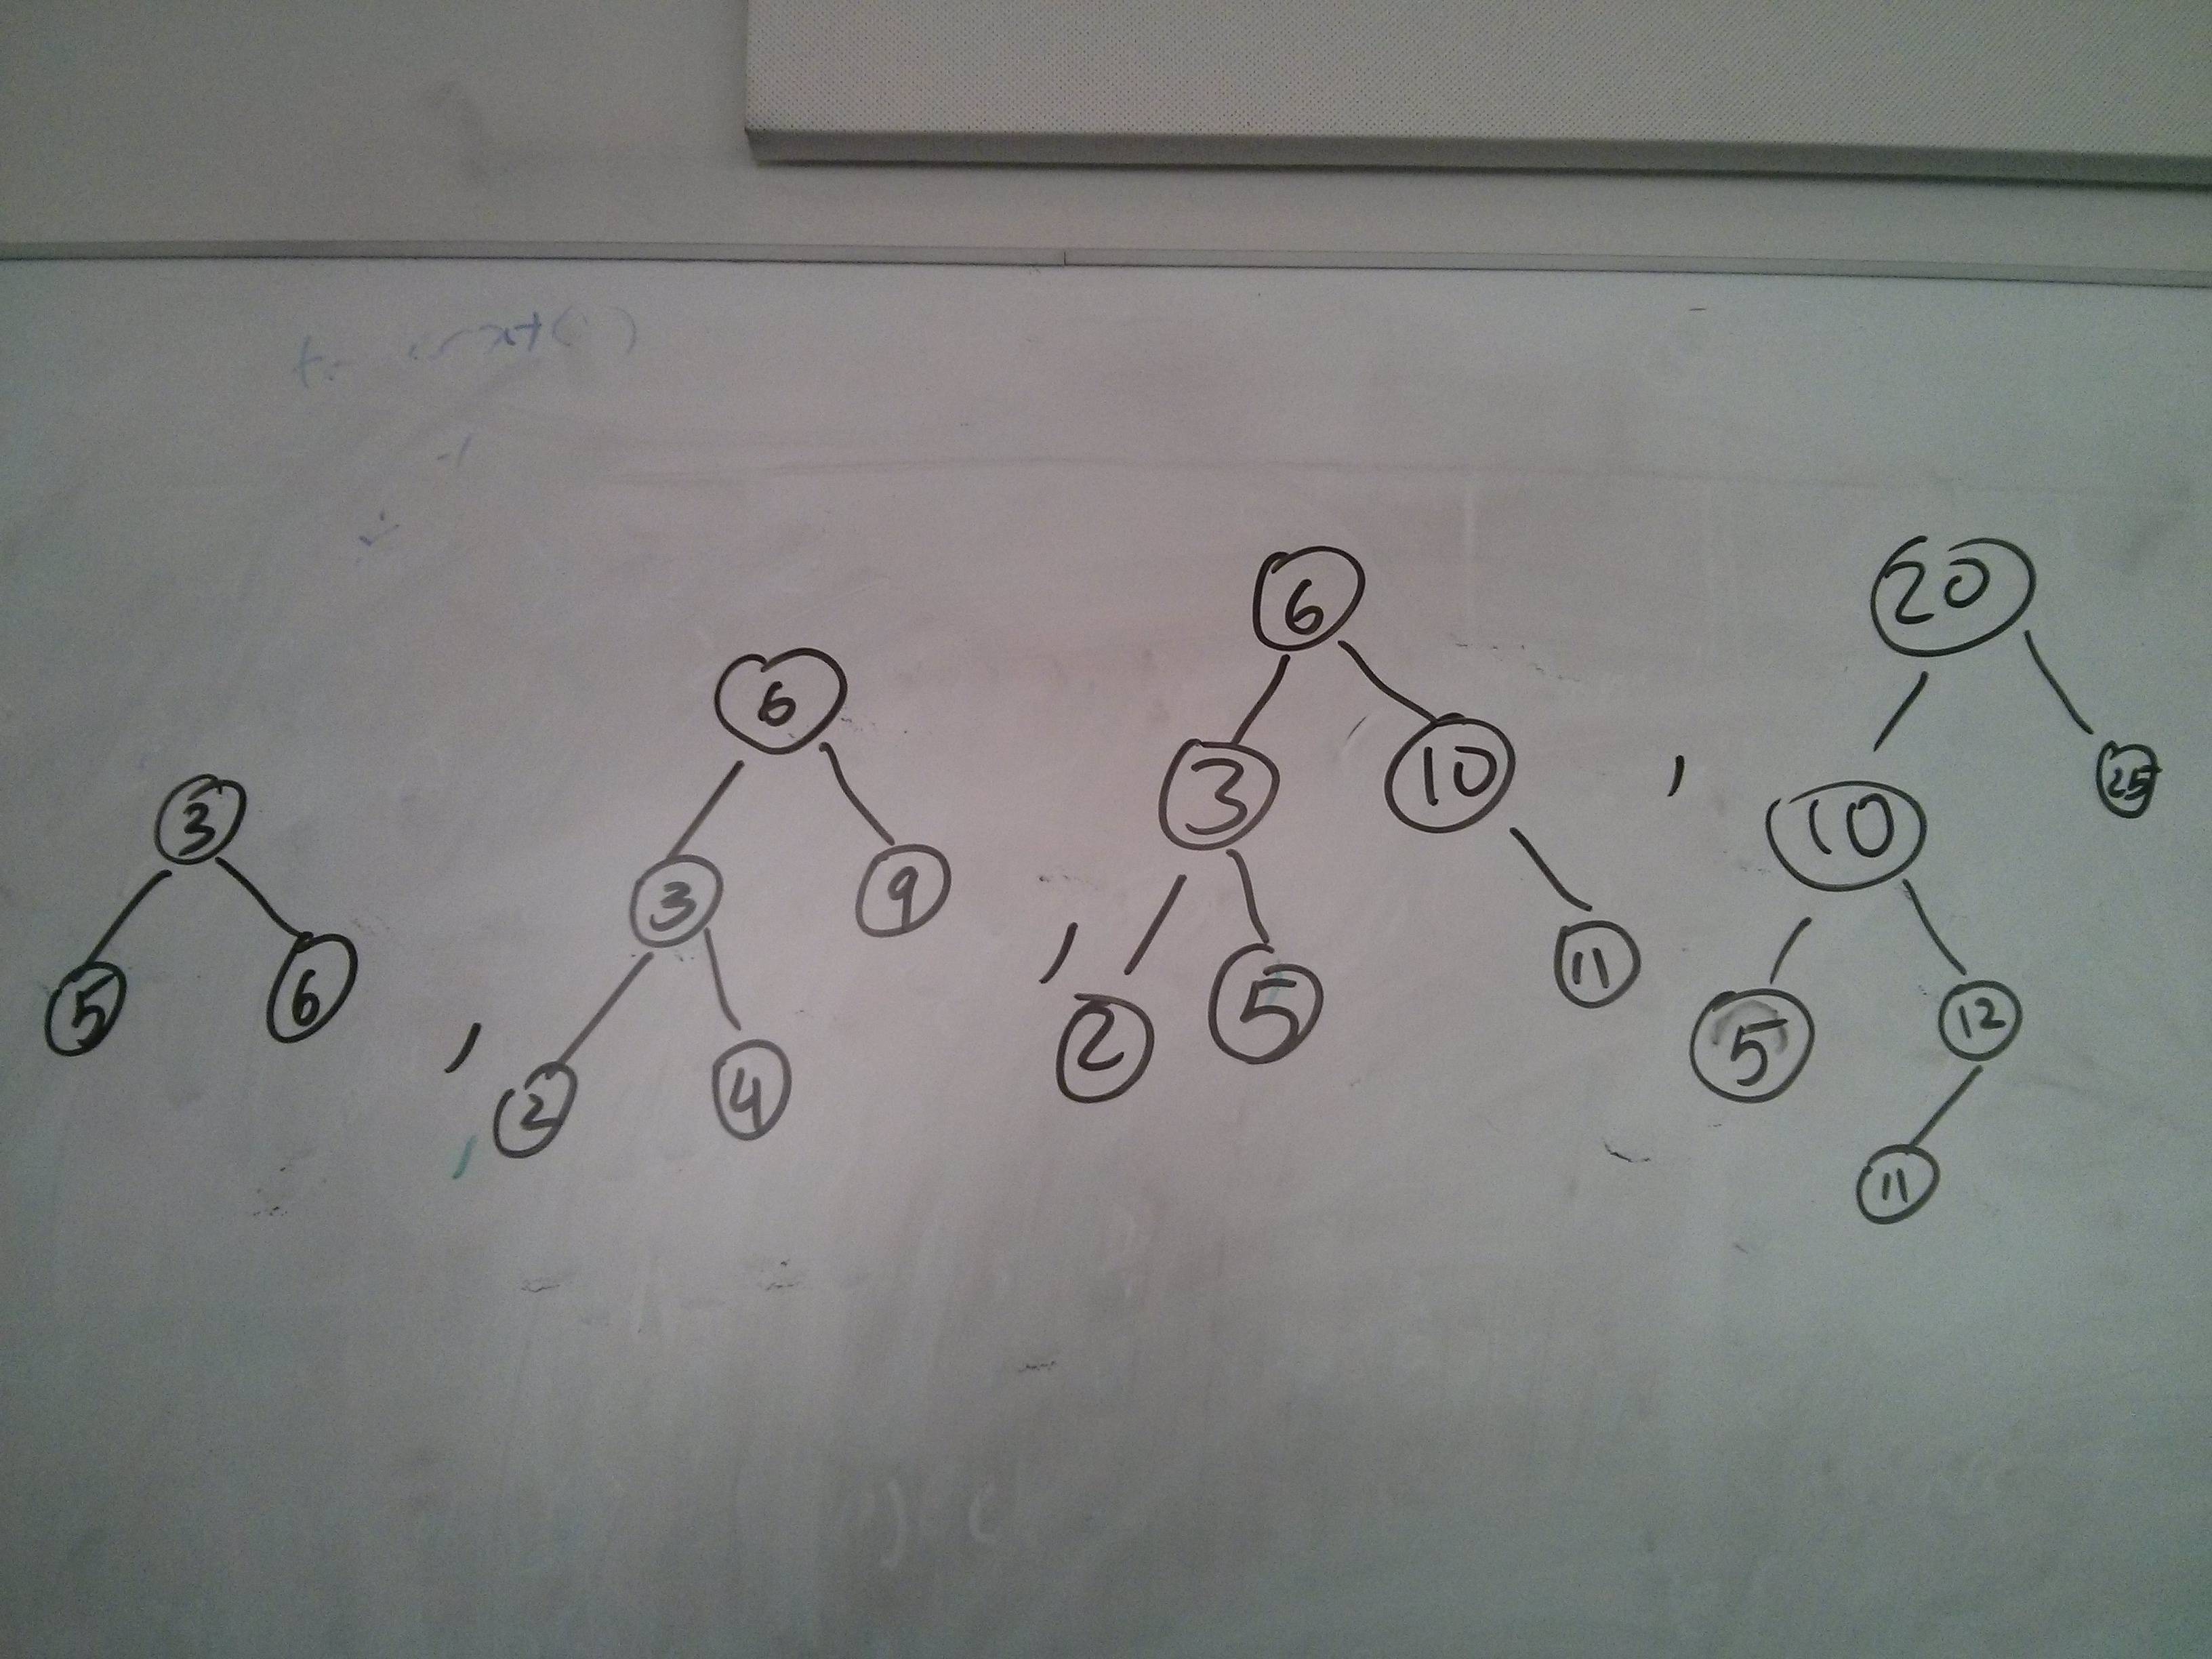 3
5 6
,
6
3 9
2 4
,
6
3 10
2 5 11
,
20
10 25
5 12
11